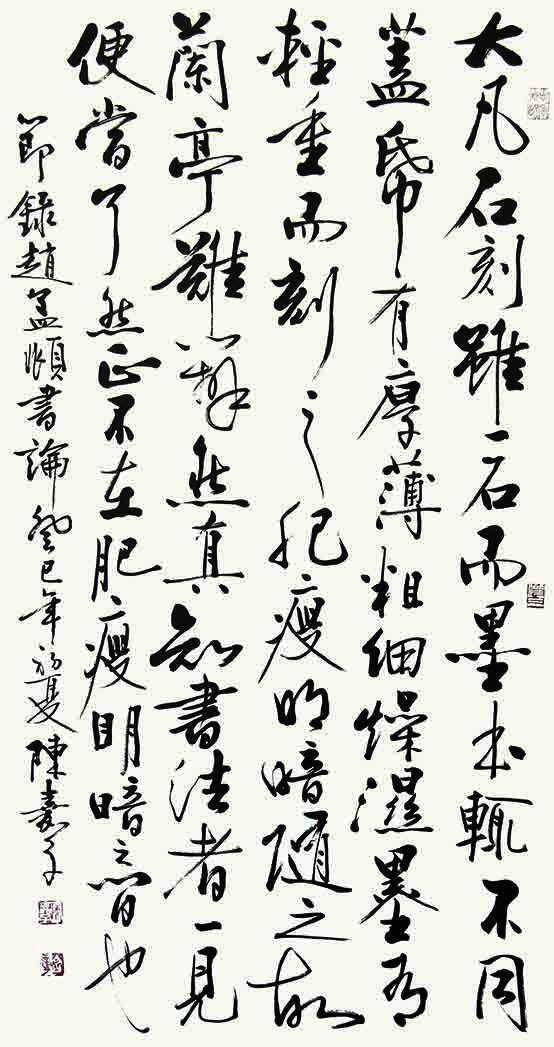 大凡石刻雖一石而墨本輒不同
蓋帋有厚薄粗細燥濕墨有
輕重而刻之肥瘦明暗隨之故
蘭亭難辨然真知書法者一見
便當了然正不在肥瘦明暗之間也
節錄趙孟頫書論癸巳年初夏陳嘉子